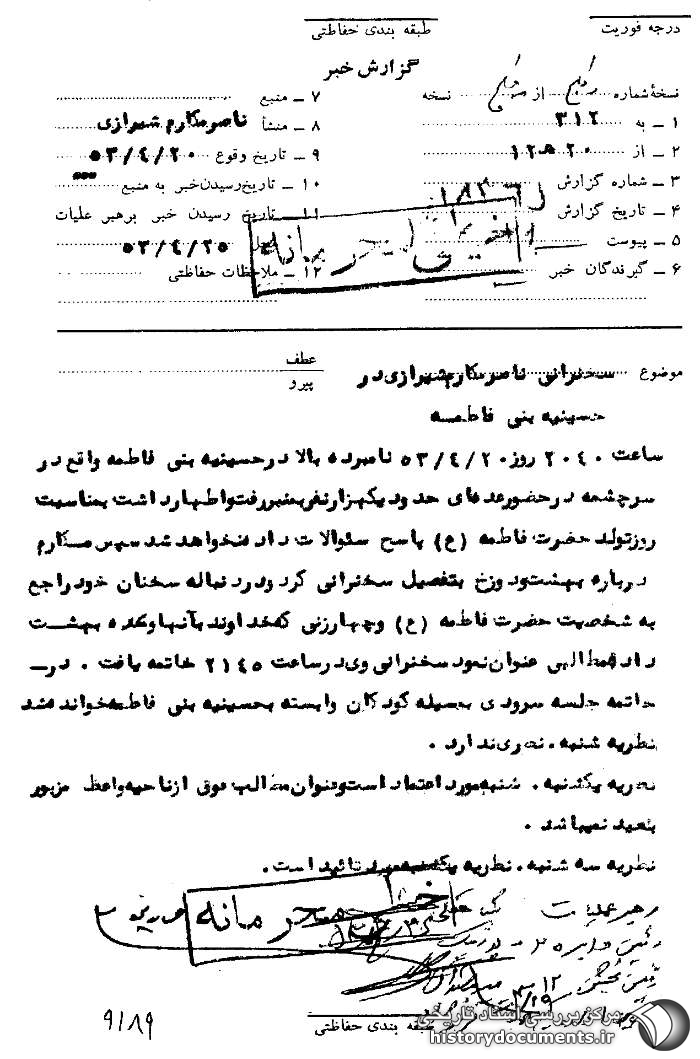 درجه فوریت
طبقه بندی حفاظتی
گزارش خبر
نسخه شماره از نسخه
۱ ـ به ۳۱۲
۲ ـ از ۲۰ ه ۱۲
۳ ـ شماره گزارش
۴ ـ تاریخ گزارش
۵ ـ پیوست
۶ ـ گیرندگان خبر
۷ ـ منبع
۸ ـ منشأ ناصر مکارم شیرازی
۹ ـ تاریخ وقوع ۵۳/۴/۲۰
۱۰ ـ تاریخ رسیدن خبر به منبع
۱۱ ـ تاریخ رسیدن خبر برهبر عملیات
محل ۵۳/۴/۲۵
۱۲ ـ ملاحظات حفاظتی
خیلی محرمانه
موضوع سخنرانی ناصر مکارم شیرازی در
حسینیه بنی فاطمه
عطف
پیرو
ساعت ۲۰۴۰ روز ۵۳/۴/۲۰ نامبرده بالا در حسینیه بنی فاطمه واقع در
سرچشمه در حضور عده‌ای حدود یکهزار نفر بمنبر رفت و اظهار داشت بمناسبت
روز تولد حضرت فاطمه (ع) پاسخ سئوالات داده نخواهد شد سپس مکارم
درباره بهشت و دوزخ بتفصیل سخنرانی کرد و در دنباله سخنان خود راجع
به شخصیت حضرت فاطمه (ع) و چهار زنی که خداوند بآنها وعده بهشت
داده مطالبی عنوان نمود سخنرانی وی در ساعت ۲۱۴۵ خاتمه یافت . در ـ
خاتمه جلسه سرودی بوسیله کودکان وابسته بحسینیه بنی فاطمه خوانده شد
نظریه شنبه . نظری ندارد .
نظریه یکشنبه . شنبه مورد اعتماد است و عنوان مطالب فوق از ناحیه واعظ مزبور
بعید نمیباشد .
نظریه سه شنبه . نظریه یکشنبه مورد تائید است .
خیلی محرمانه
رهبر عملیات
رئیس دایره
رئیس بخش ۱۲
طبقه بندی حفاظتی
۹۱۸۹
مرکز بررسی اسناد تاریخی
historydocuments.ir